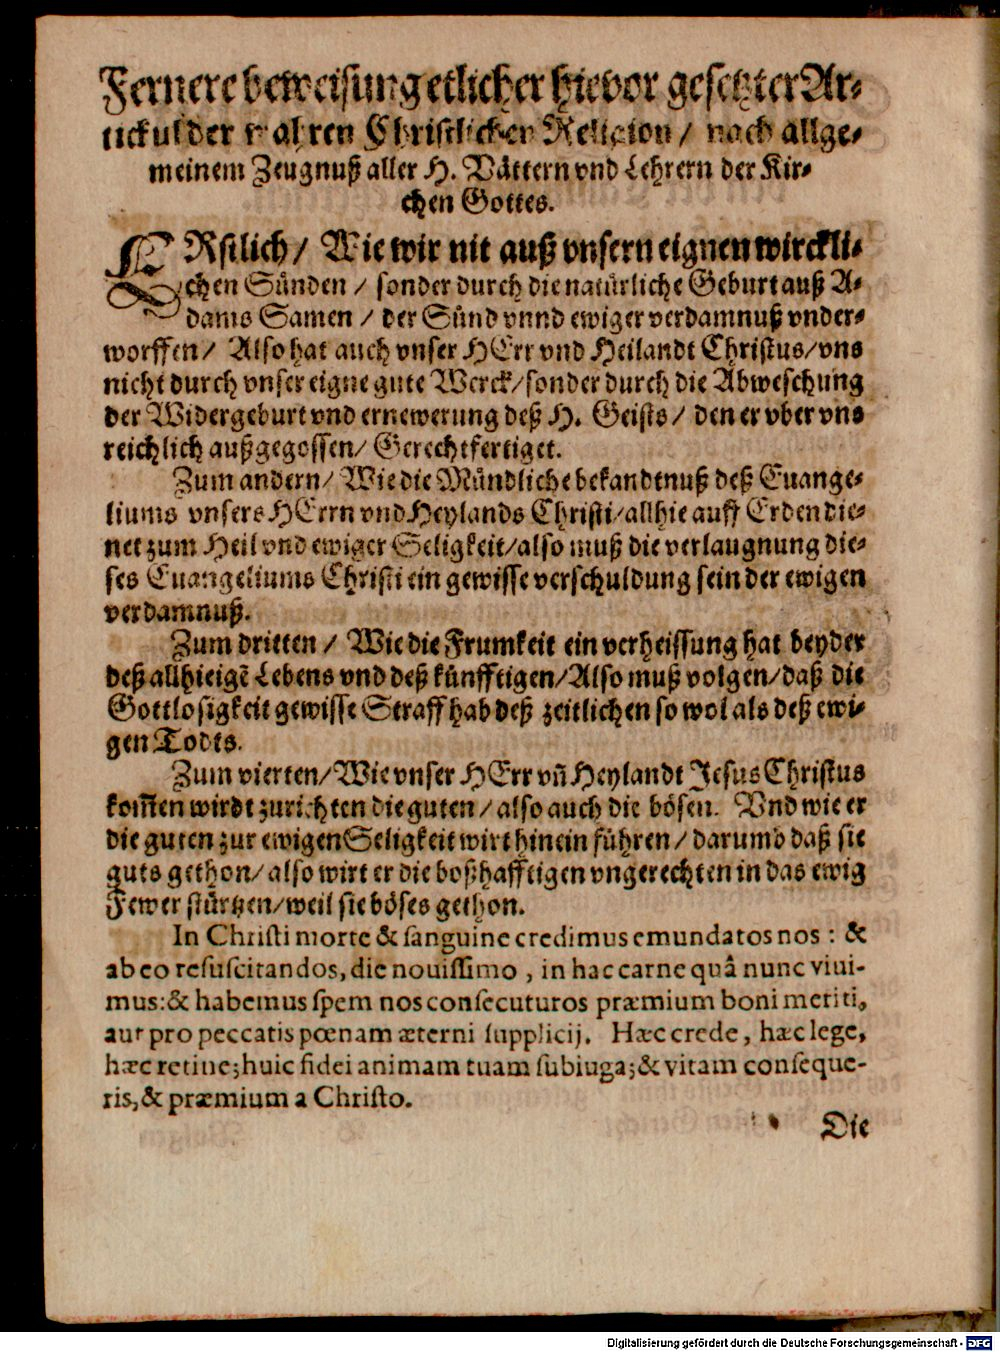 Fernere beweisung etlicher hievor gesetzter Ar⸗
tickul der wahren Christlichen Religion / nach allge⸗
meinem Zeugnuß aller H. Vättern vnd Lehrern der Kir⸗
chen Gottes.
ERstlich / Wie wir nit auß vnsern eignen wirckli⸗
chen Sünden / sonder durch die natürliche Geburt auß A⸗
dams Samen / der Sünd vnnd ewiger verdamnuß vnder⸗
worffen / Also hat auch vnser HErr vnd Heilandt Christus / vns
nicht durch vnser eigne gute Werck / sonder durch die Abweschung
der Widergeburt vnd ernewerung deß H. Geists / den er vber vns
reichlich außgegossen / Gerechtfertiget.
Zum andern / Wie die Mündliche bekandtnuß deß Euange⸗
liums vnsers HErrn vnd Heylands Christi / allhie auff Erden die⸗
net zum Heil vnd ewiger Seligkeit / also muß die verlaugnung die⸗
ses Euangeliums Christi ein gewisse verschuldung sein der ewigen
verdamnuß.
Zum dritten / Wie die Frumkeit ein verheissung hat beyder
deß allhieigẽ Lebens vnd deß künfftigen / Also muß volgen / daß die
Gottlosigkeit gewisse Straff hab deß zeitlichen so wol als deß ewi⸗
gen Todts.
Zum vierten / Wie vnser HErr vñ Heylandt Jesus Christus
kom̃en wirdt zurichten die guten / also auch die bösen. Vnd wie er
die guten zur ewigen Seligkeit wirt hinein führen / darumb daß sie
guts gethon / also wirt er die boßhafftigen vngerechten in das ewig
Fewer stürtzen / weil sie böses gethon.
In Christi morte & sanguine credimus emundatos nos : &
ab eo resuscitandos, die nouissimo , in hac carne quâ nunc viui-
mus: & habemus spem nos consecuturos præmium boni meriti,
aut pro peccatis pœnam æterni supplicij. Hæc crede, hæc lege,
hæc retine; huic fidei animam tuam subiuga; & vitam conseque-
ris, & præmium a Christo.
Die
Digitalisierung gefördert durch die Deutsche Forschungsgemeinschaft - DFG